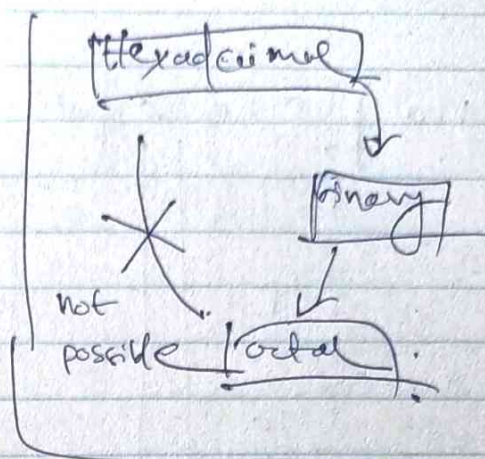 Hexadecimal
binary
not
possible octal